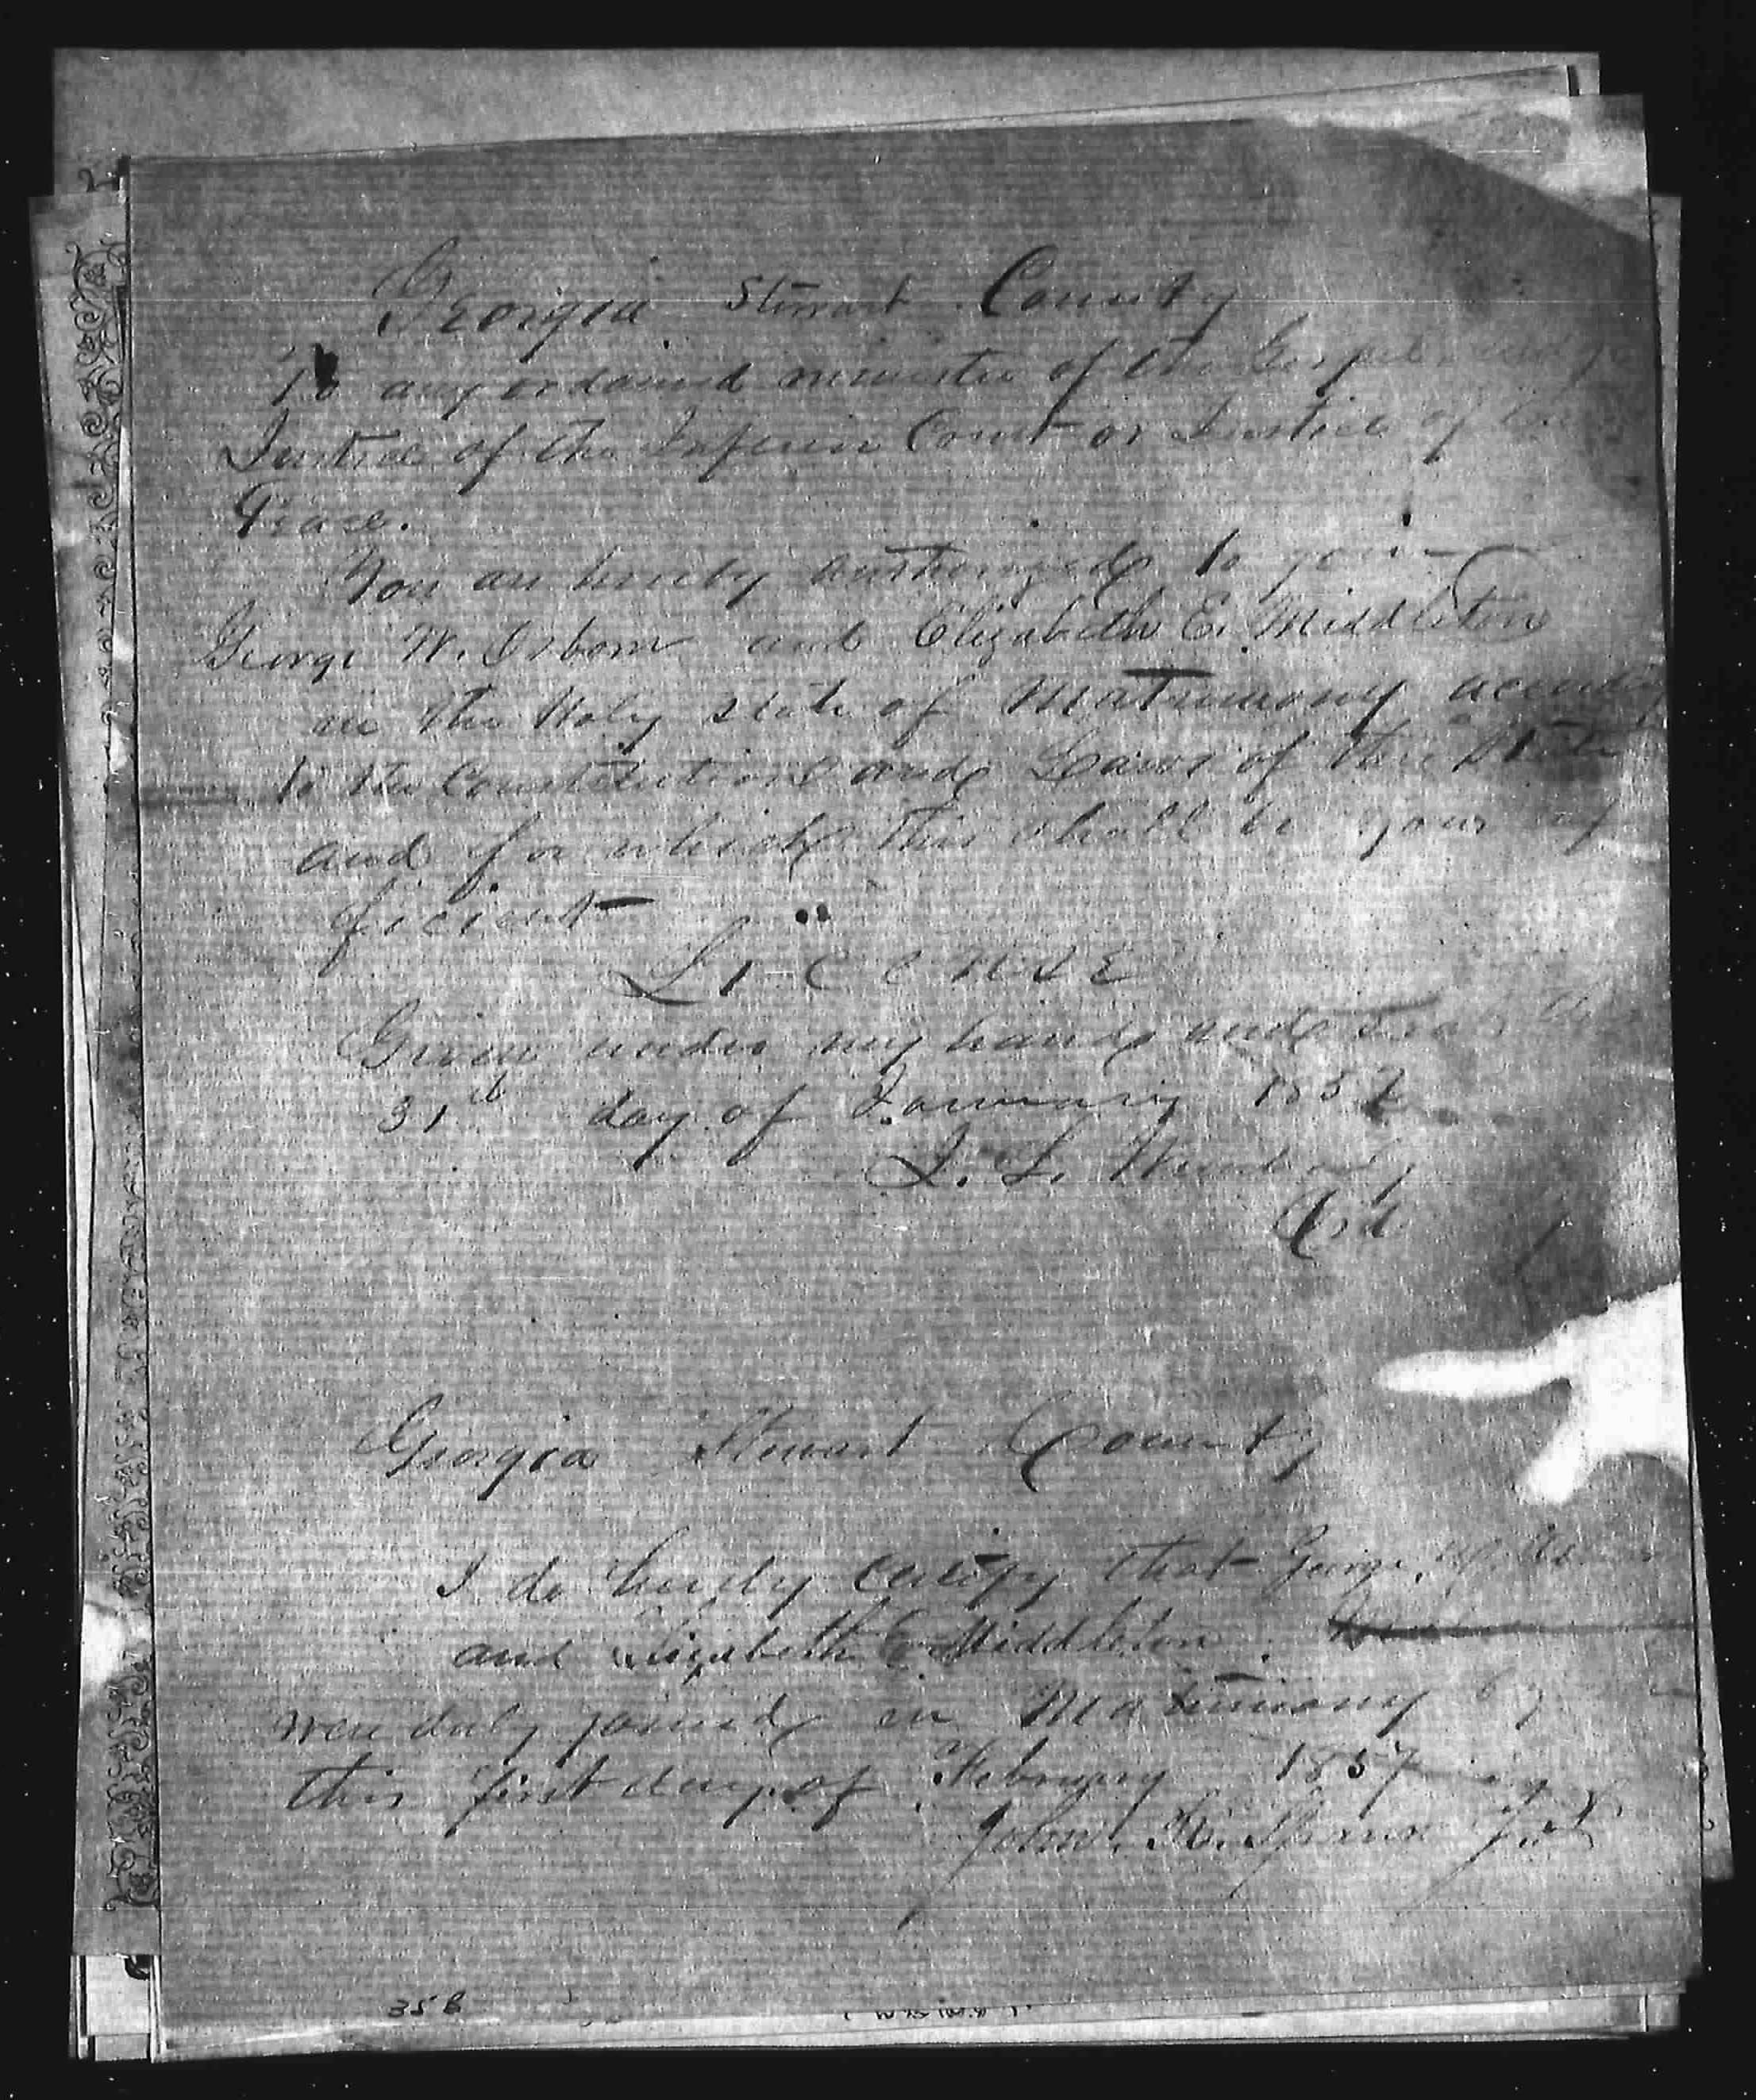 Georgia Stewart County
To any ordained minister of the Gospel Judge
Justice of the Inferior Court or Justice of the
Peace.
You are hereby authorized to join
George W. Osborn and Elizabeth E. Middleton
in the Holy state of Matrimony according
to the Constitution and Laws of this State
and for which this shall be your suf
ficient
License
Given under my hand and seal this
31st day of January 1857
J. L.
Ord
Georgia Stewart County
I do hereby certify that George W.
and Elizabeth E Middleton
were duly joined in Matrimony by
this first day of February 1857
John K. Spann J.P.
358